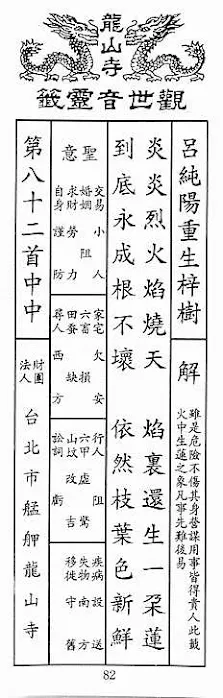 龍山寺
觀世音靈籤
呂純陽重生梓樹
解
雖是危險不傷其身營謀用事皆得貴人此籤
火中生蓮之象凡事先難後易
炎炎烈火焰燒天　焰裏還生一朵蓮
到底永成根不壞　依然枝葉色新鮮
聖意
交易　小人
婚姻　阻
求財　勞力
自身　謹防
家宅　欠安
六畜　損
田蚕　缺
尋人　西方
行人　阻
六甲　虛驚
山坟　改吉
訟詞　虧
疾病　設送
失物　南方
移徙　守舊
第八十二首中中
財團法人台北市艋舺龍山寺
82